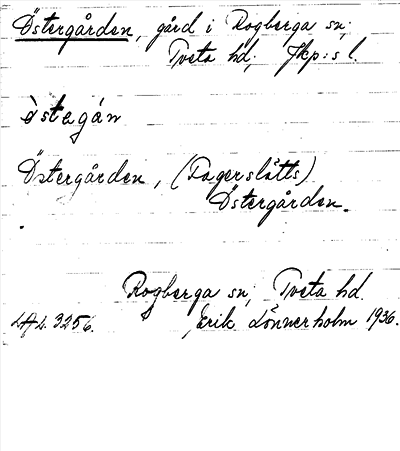 Östergården, gård i Rogberga sn,
Tveta hd, Jkp:s l.
östegán
Östergården, (Fagerslätts)
Östergården.
Rogberga sn, Tveta hd.
Erik Lönnerholm 1936.
LAL. 3256.